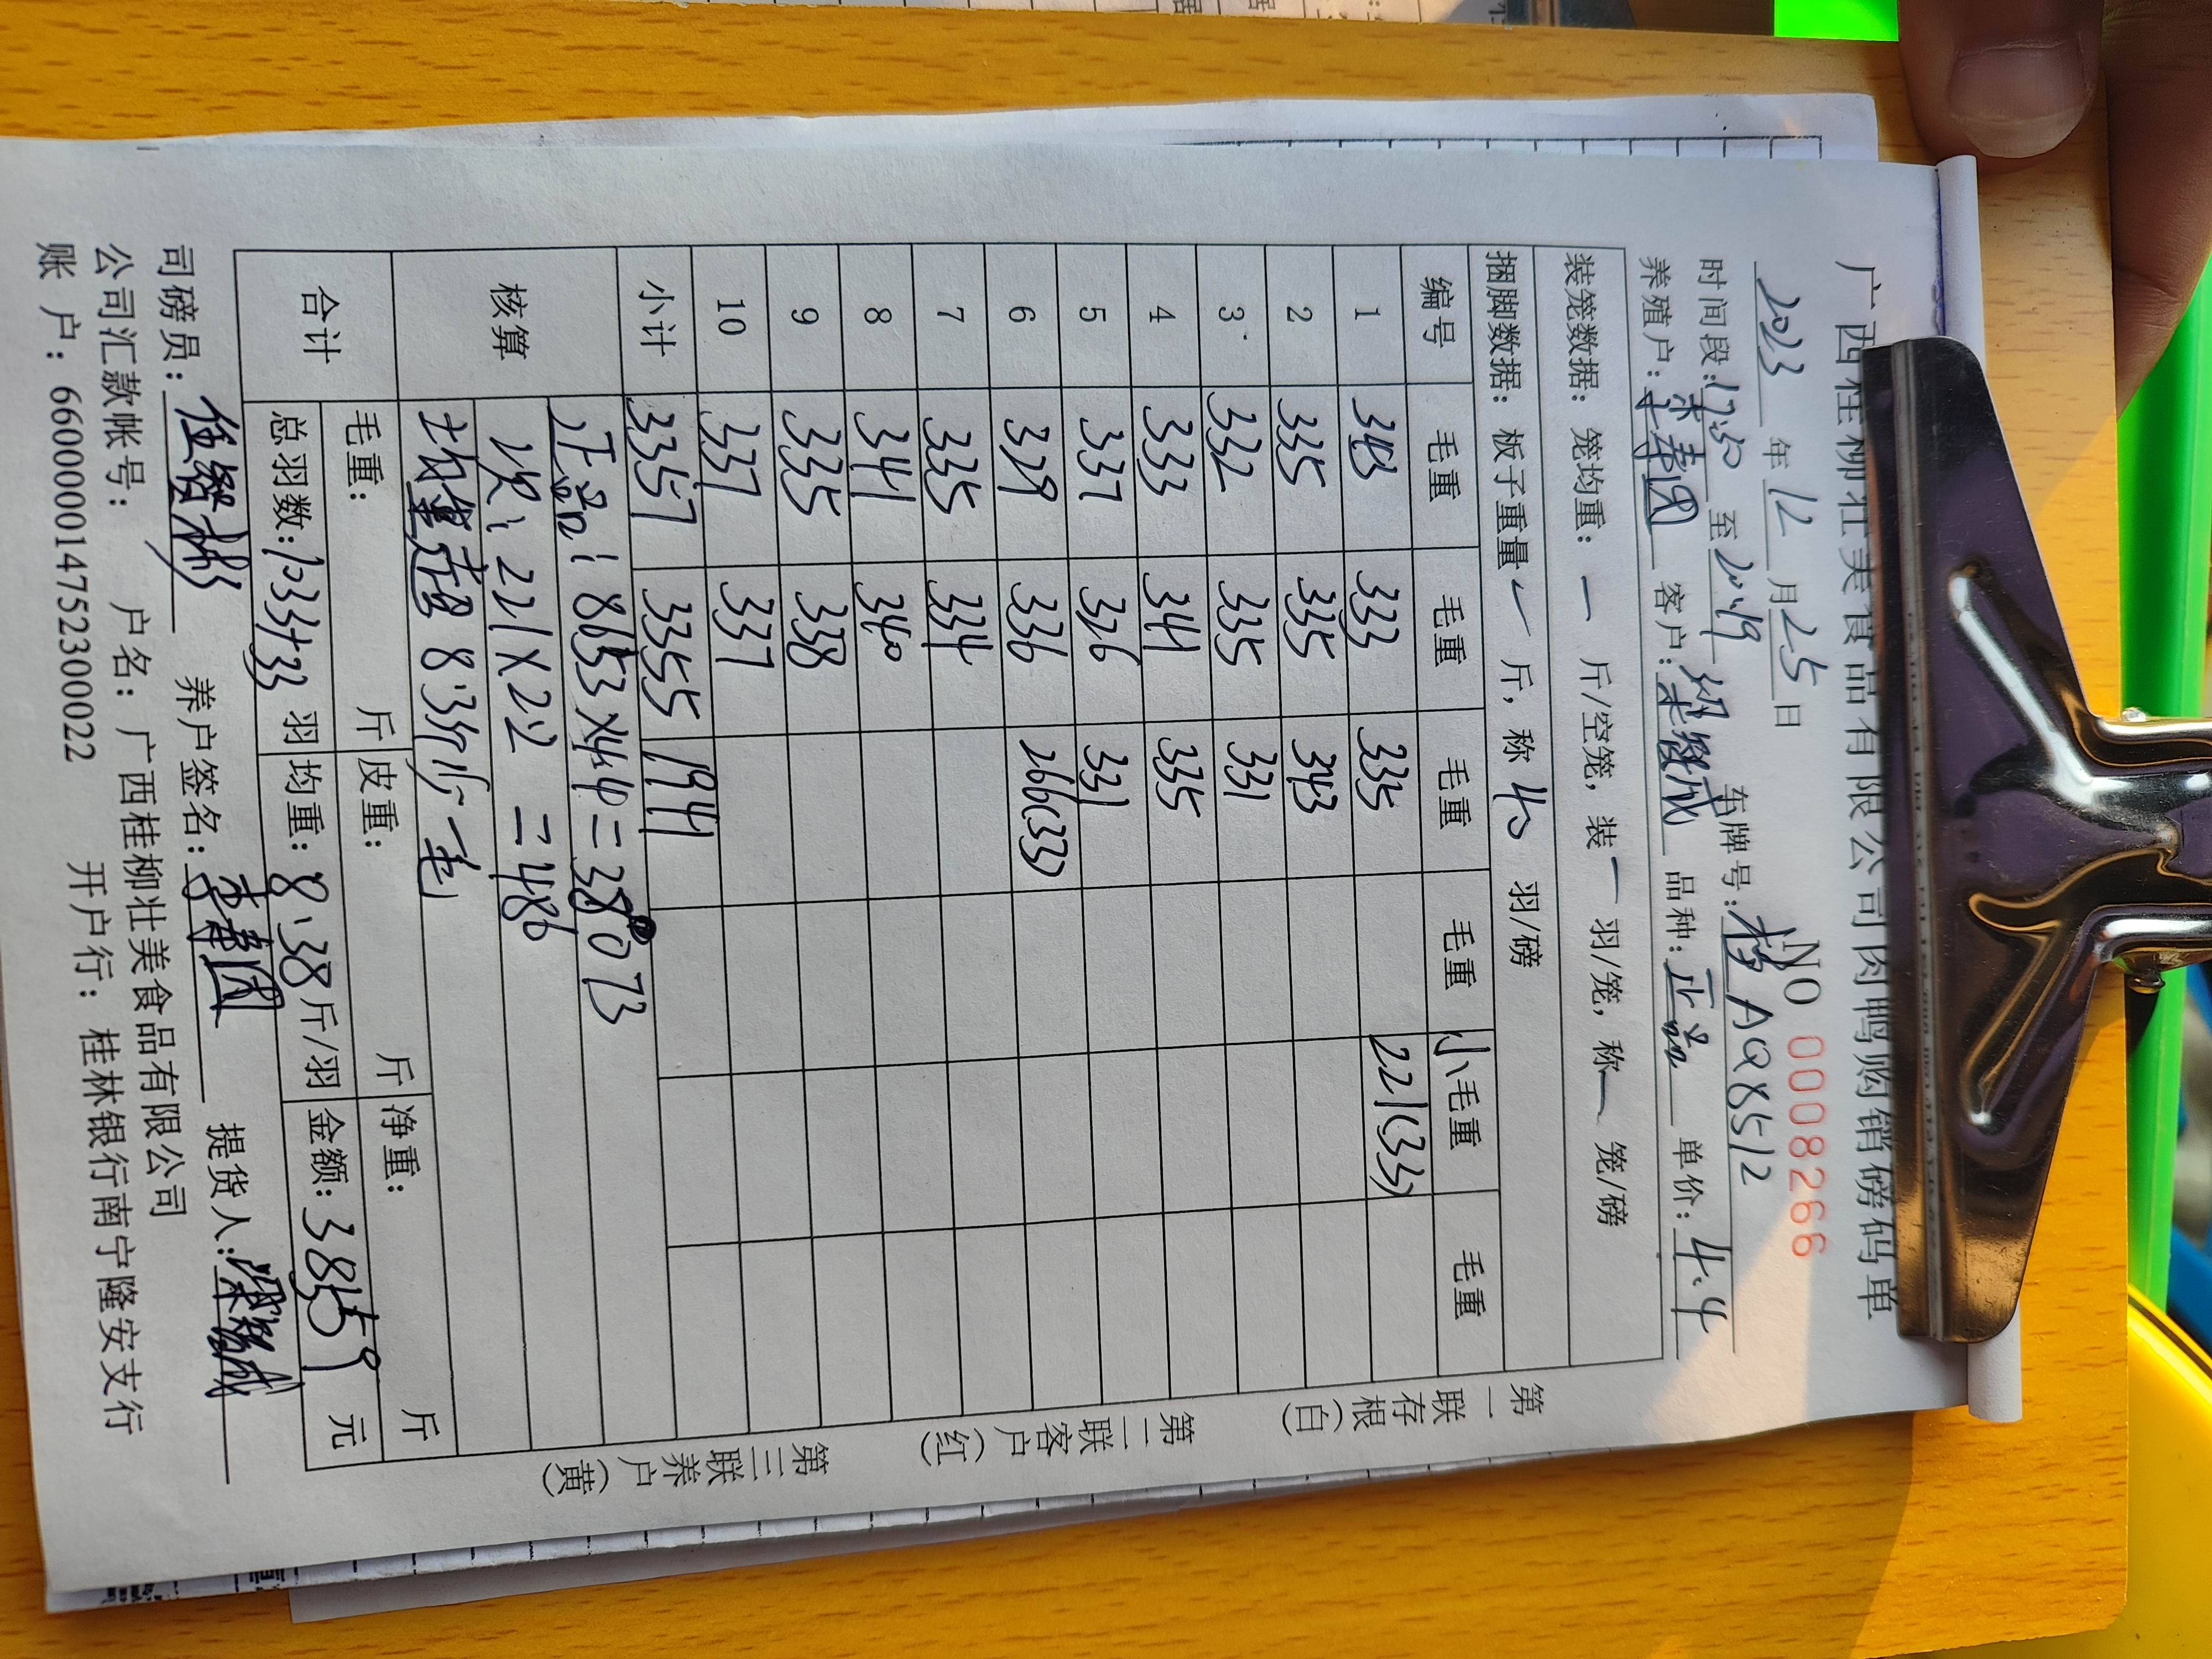 广西桂柳壮美食品有限公司肉鸭购销磅码单
NO 0008266
2023 年 12 月 25 日 车牌号：桂AQ8512
时间段：17:50 至 20:19 客户： 品种：正品 单价：4.4
养殖户：
装笼数据：笼均重：一 斤/空笼，装一羽/笼，称一笼/磅
捆脚数据：板子重量 斤，称 40 羽/磅
编号 毛重 毛重 毛重 毛重 小毛重 毛重
1 343 333 335 221(33)
2 335 335 343
3 332 335 331
4 333 341 335
5 337 326 331
6 329 336 266(33)
7 335 334
8 341 340
9 335 338
10 337 337
小计 3357 3355 1941
核算 正品：8653×4.4=38073
次：221×2.2 =486
均重超8.3斤少一毛
合计 毛重： 斤 皮重： 斤 净重： 斤
总羽数：1033+33 羽 均重：8.38斤/羽 金额：38559 元
司磅员： 养户签名： 提货人：
公司汇款帐号： 户名：广西桂柳壮美食品有限公司
账 户：660000014752300022 开户行：桂林银行南宁隆安支行
第一联存根（白） 第二联客户（红） 第三联养户（黄）